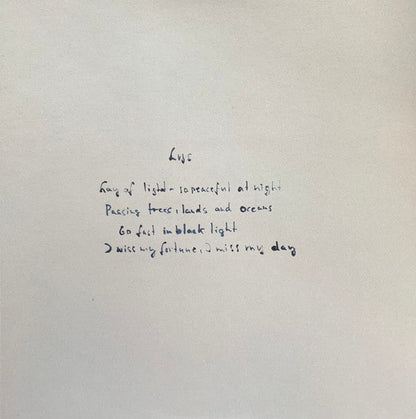 of light - so peaceful at night
Passing trees, lands and oceans
Go fast in black light
I miss my fortune, I miss my day